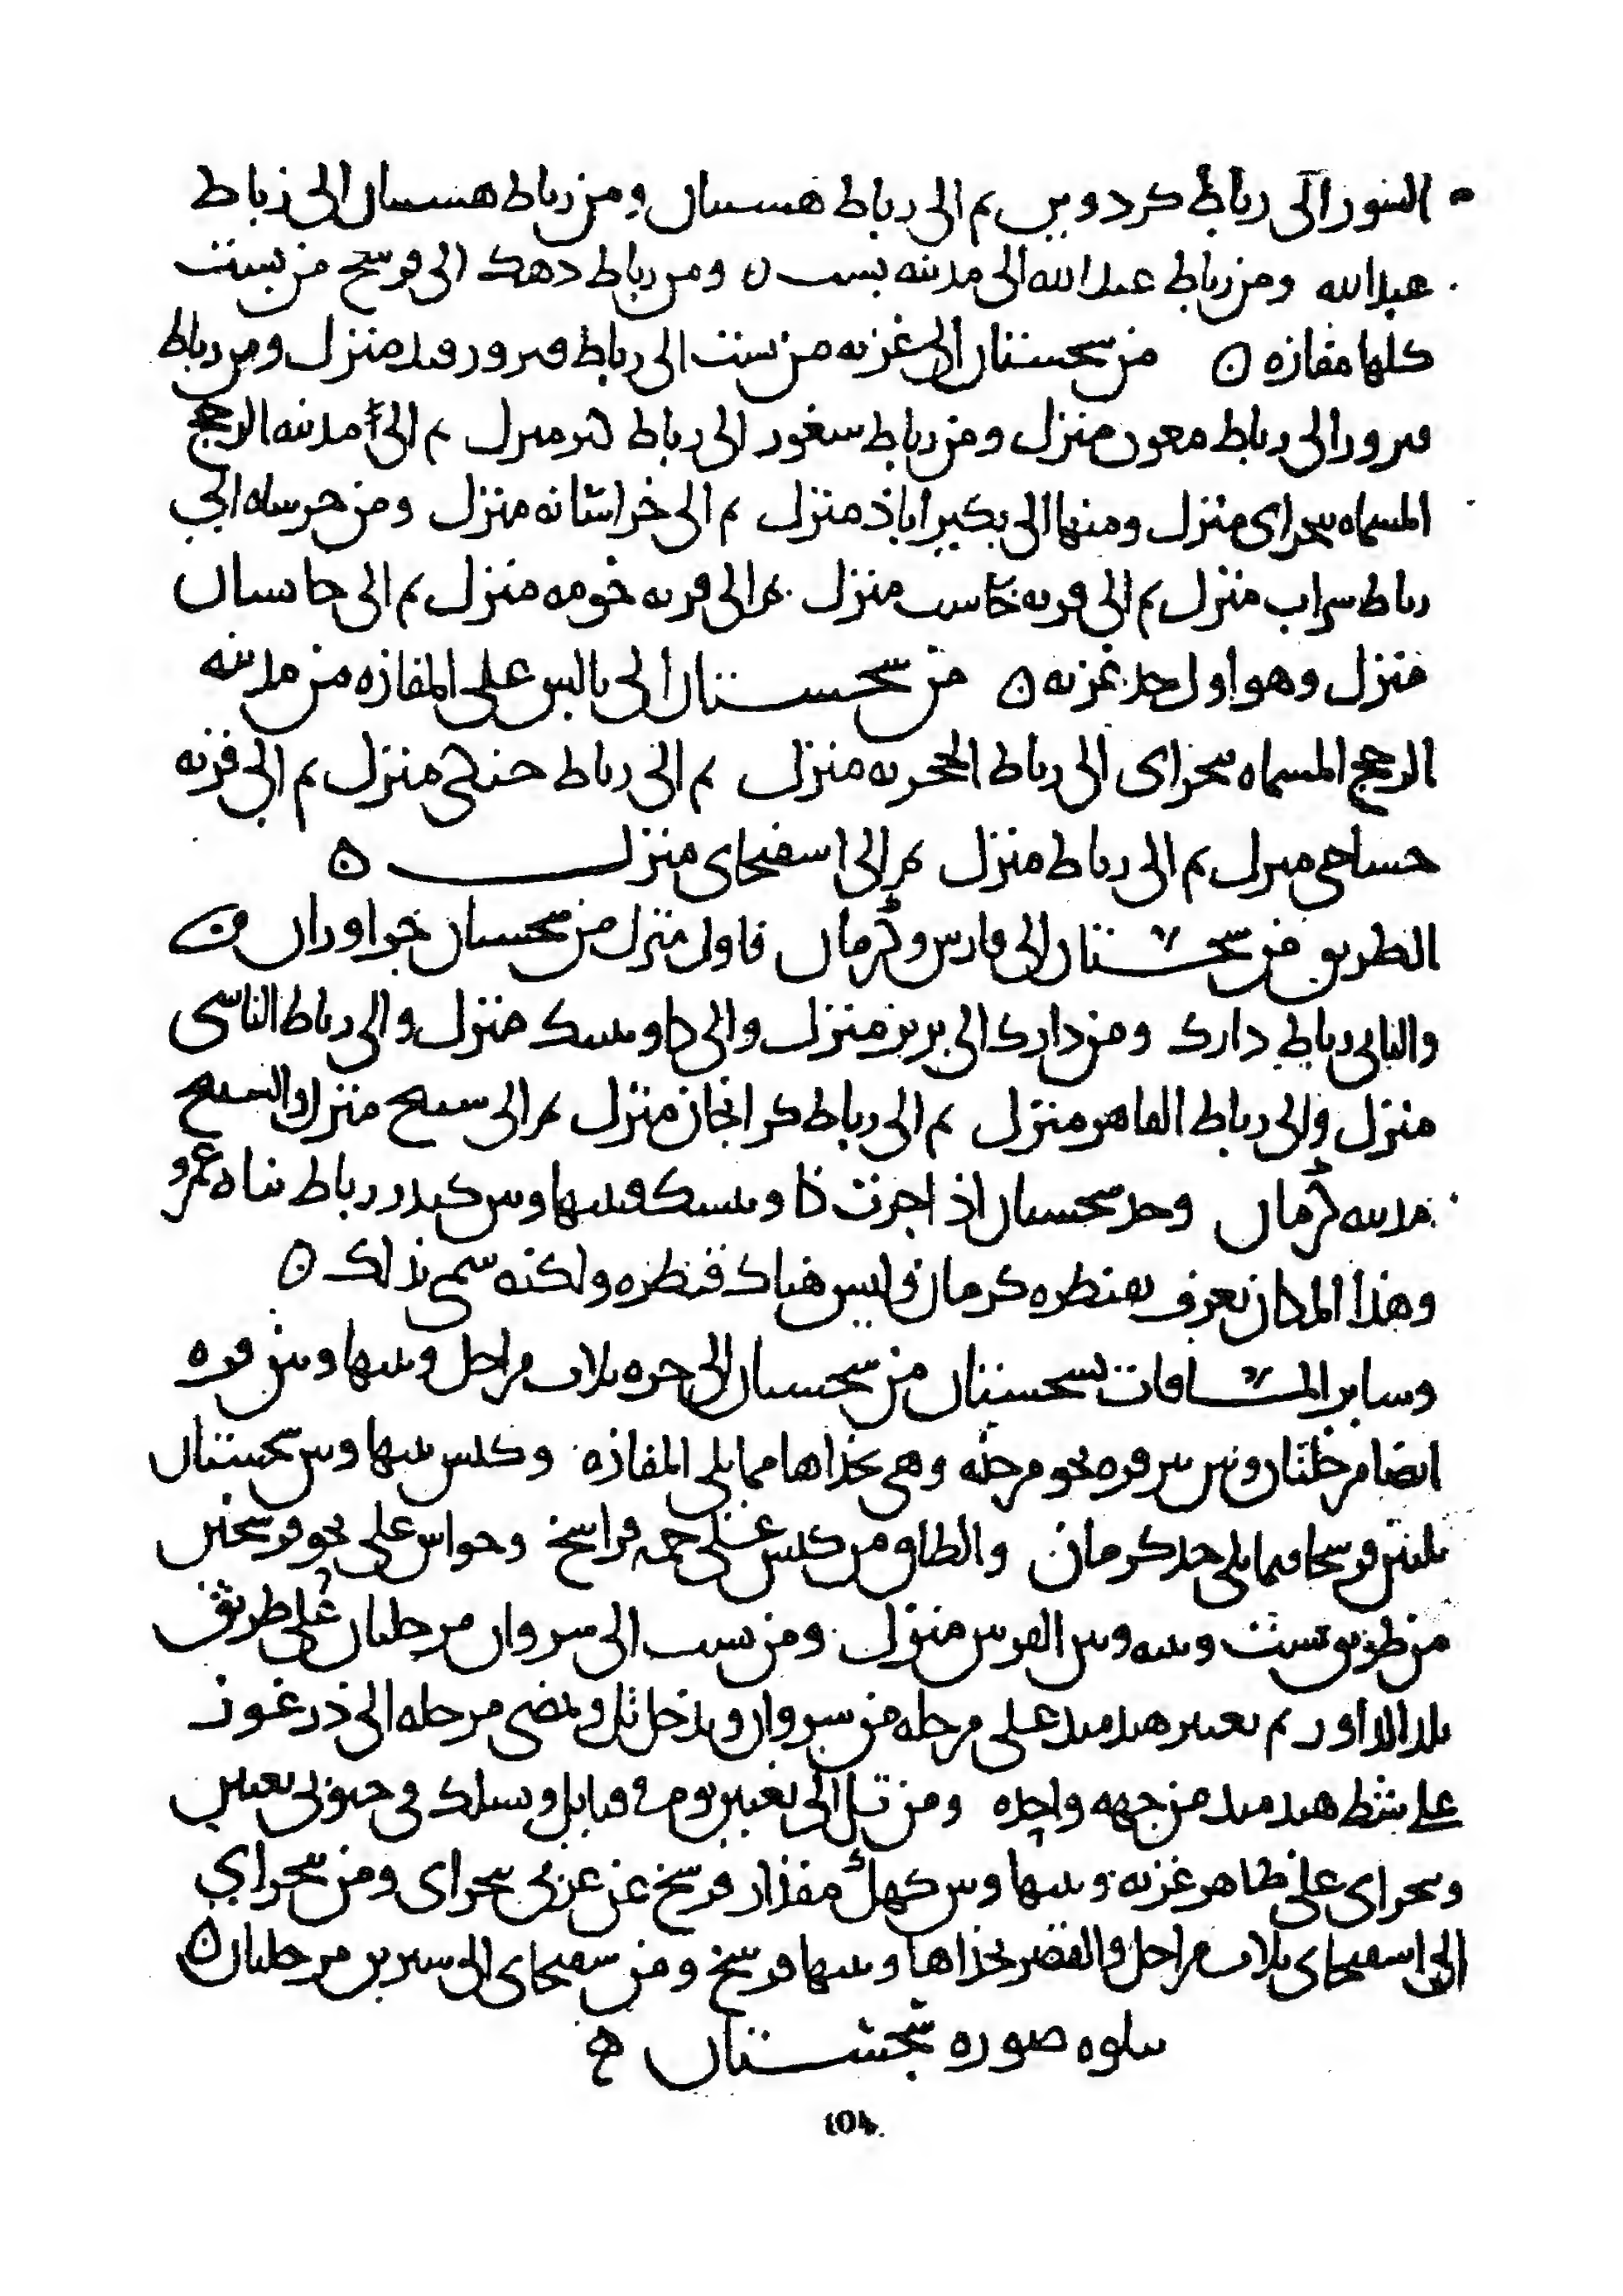 السور الى رباط كردوين ثم الى رباط هسسان ومن رباط هسسان الى رباط
عبدالله ومن رباط عبدالله الى مدينه بست ه ومن رباط دهك الى فرسخ من بست
كلها مفازه ه من سجستان الى غزنه من بست الى رباط فيروزقند منزل ومن رباط
فيروز الى رباط معون منزل ومن رباط سغور الى رباط كبر منزل ثم الى مدينه الرخج
المسماه بنجواى منزل ومنها الى بكيراباذ منزل ثم الى خراسانه منزل ومن خرسانه الى
رباط سراب منزل ثم الى قريه منزل ثم الى قريه خومه منزل ثم الى جابسان
منزل وهو اول حد غزنه ه من سجستان الى بالس على المفازه من مدينه
الرخج المسماه بنجواى الى رباط الحجريه منزل ثم الى رباط جنكى منزل ثم الى قريه
منزل ثم الى رباط منزل ثم الى اسفنجاى منزل ه
الطريق من سجستان الى فارس وكرمان فاول منزل من سجستان خواوران
والثانى رباط دارك ومن دارك الى برىن منزل والى كاونيسك منزل والى رباط الناسى
منزل والى رباط القاهر منزل ثم الى رباط كرانخان منزل ثم الى سنيج منزل والسنيج
مدينه كرمان وحد سجستان اذا جزت كاونيسك وبينها وبين كندر رباط بناه عمرو
وهذا المكان يعرف بقنطره كرمان وليس هناك قنطره ولكنه سمى بذلك ه
وساير المسافات بسجستان من سجستان الى جزه ثلاث مراحل وبينها وبين فره
ايضا مرحلتان وبين فره نحو مرحله وهى بحذاها مما يلى المفازه وكلس بينها وبين سجستان
ثلثين فرسخا مما يلى حد كرمان والطاق من كلس على خمسه فراسخ وخواش على نحو فرسخين
من طريق بست وبينه وبين القرنين منزل ومن بست الى سروان مرحلتان على طريق
بلد الداور ثم تعبر هيذمند على مرحله من سروان وتدخل تل وتمضى مرحله الى درغوز
على شط هيذمند من جهه واحده ومن تل الى بغنين يوم فى قبايل وبشلنك فى جنوبى بغنين
وبنجواى على ظاهر غزنه وبينها وبين كهك مقدار فرسخ عن غربى بنجواى ومن بنجواى
الى اسفنجاى ثلاث مراحل والقصر بحذاها وبينها فرسخ ومن سفنجاى الى سيرين مرحلتان ه
يتلوه صوره سجستان
104